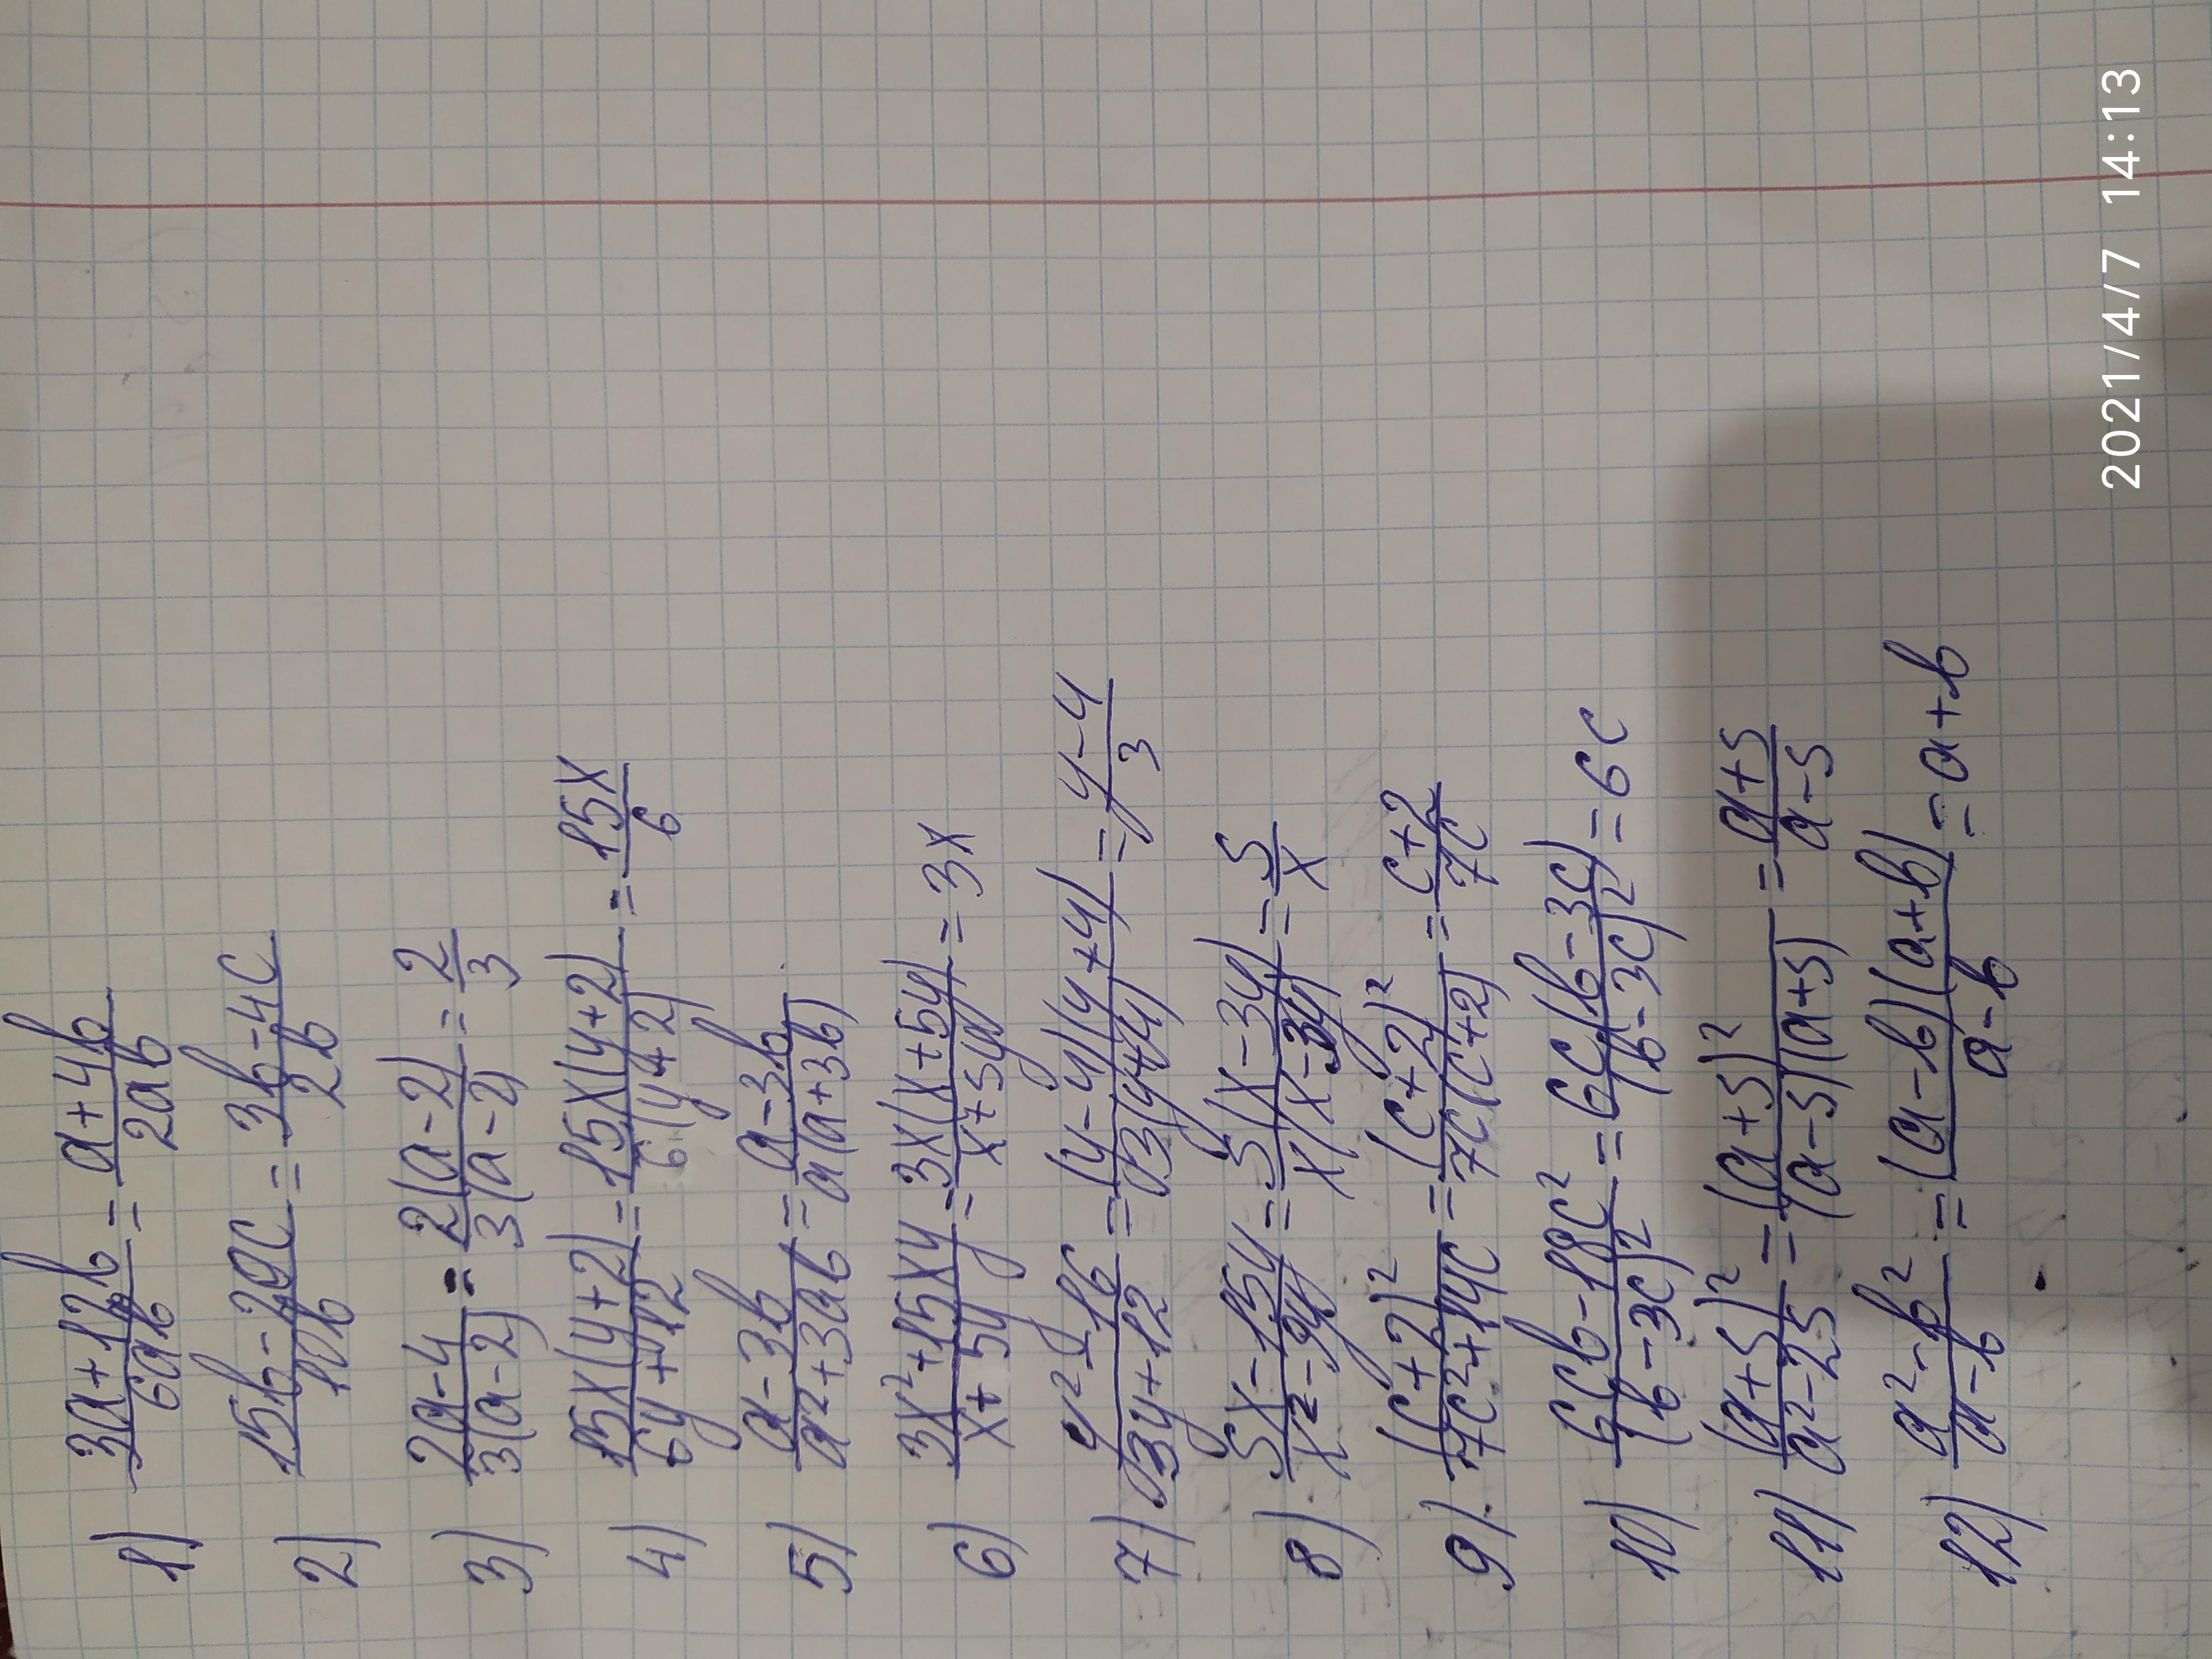 1) (3a+12b)/(6ab) = (a+4b)/(2ab)
2) (15b-20c)/(10b) = (3b-4c)/(2b)
3) (2a-4)/(3(a-2)) = (2(a-2))/(3(a-2)) = 2/3
4) (15x(y+2))/(6y+12) = (15x(y+2))/(6(y+2)) = (15x)/6
5) (a-3b)/(a²+3ab) = (a-3b)/(a(a+3b))
6) (3x²+15xy)/(x+5y) = (3x(x+5y))/(x+5y) = 3x
7) (y²-16)/(3y+12) = ((y-4)(y+4))/(3(y+4)) = (y-4)/3
8) (5x-15y)/(x²-9y) = (5(x-3y))/(x(x-3y)) = 5/x
9) (c+2)²/(7c²+14c) = (c+2)²/(7c(c+2)) = (c+2)/(7c)
10) (6cb-18c²)/(b-3c)² = (6c(b-3c))/(b-3c)² = 6c
11) (a+5)²/(a²-25) = (a+5)²/((a-5)(a+5)) = (a+5)/(a-5)
12) (a²-b²)/(a-b) = ((a-b)(a+b))/(a-b) = a+b
2021/4/7 14:13